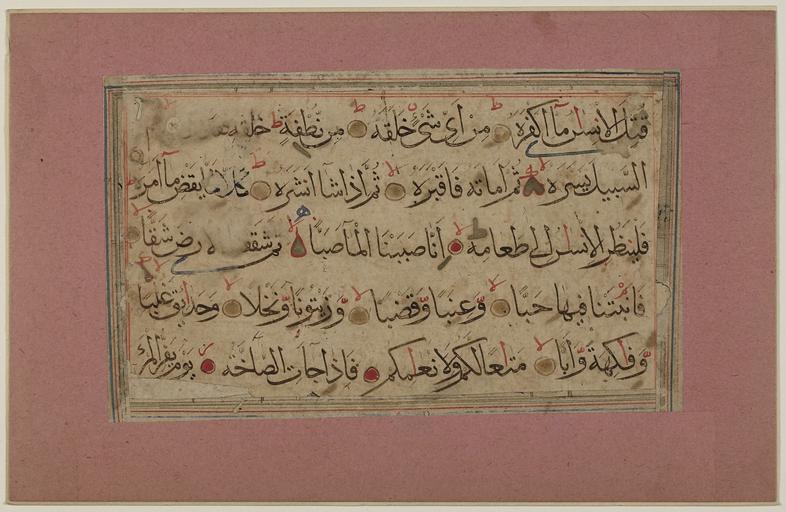 قتل الانسان ما اكفره من اى شىء خلقه من نطفة خلقه
السبيل يسره ثم اماته فاقبره ثم اذا شا انشره كلا لما يقض ما امره
فلينظر الانسان الى طعامه انا صببنا الما صبا ثم شققنا الارض شقا
فانبتنا فيها حبا وعنبا وقضبا وزيتونا ونخلا وحدائق غلبا
وفاكهة وابا متاعا لكم ولانعامكم فاذا جات الصاخة يوم يفر المر